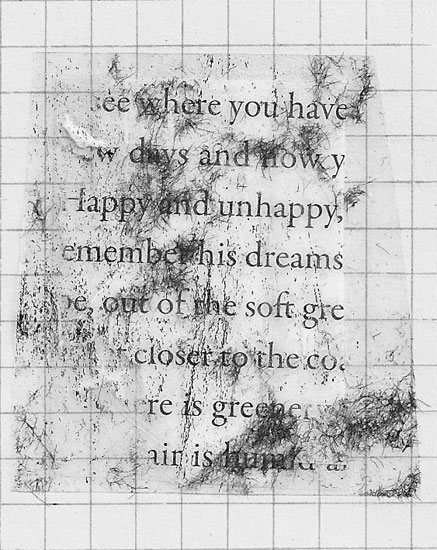 ee where you have
w days and now y
Happy and unhappy,
emember his dreams
e, out of the soft gre
closer to the co
re is greene
air is humid a